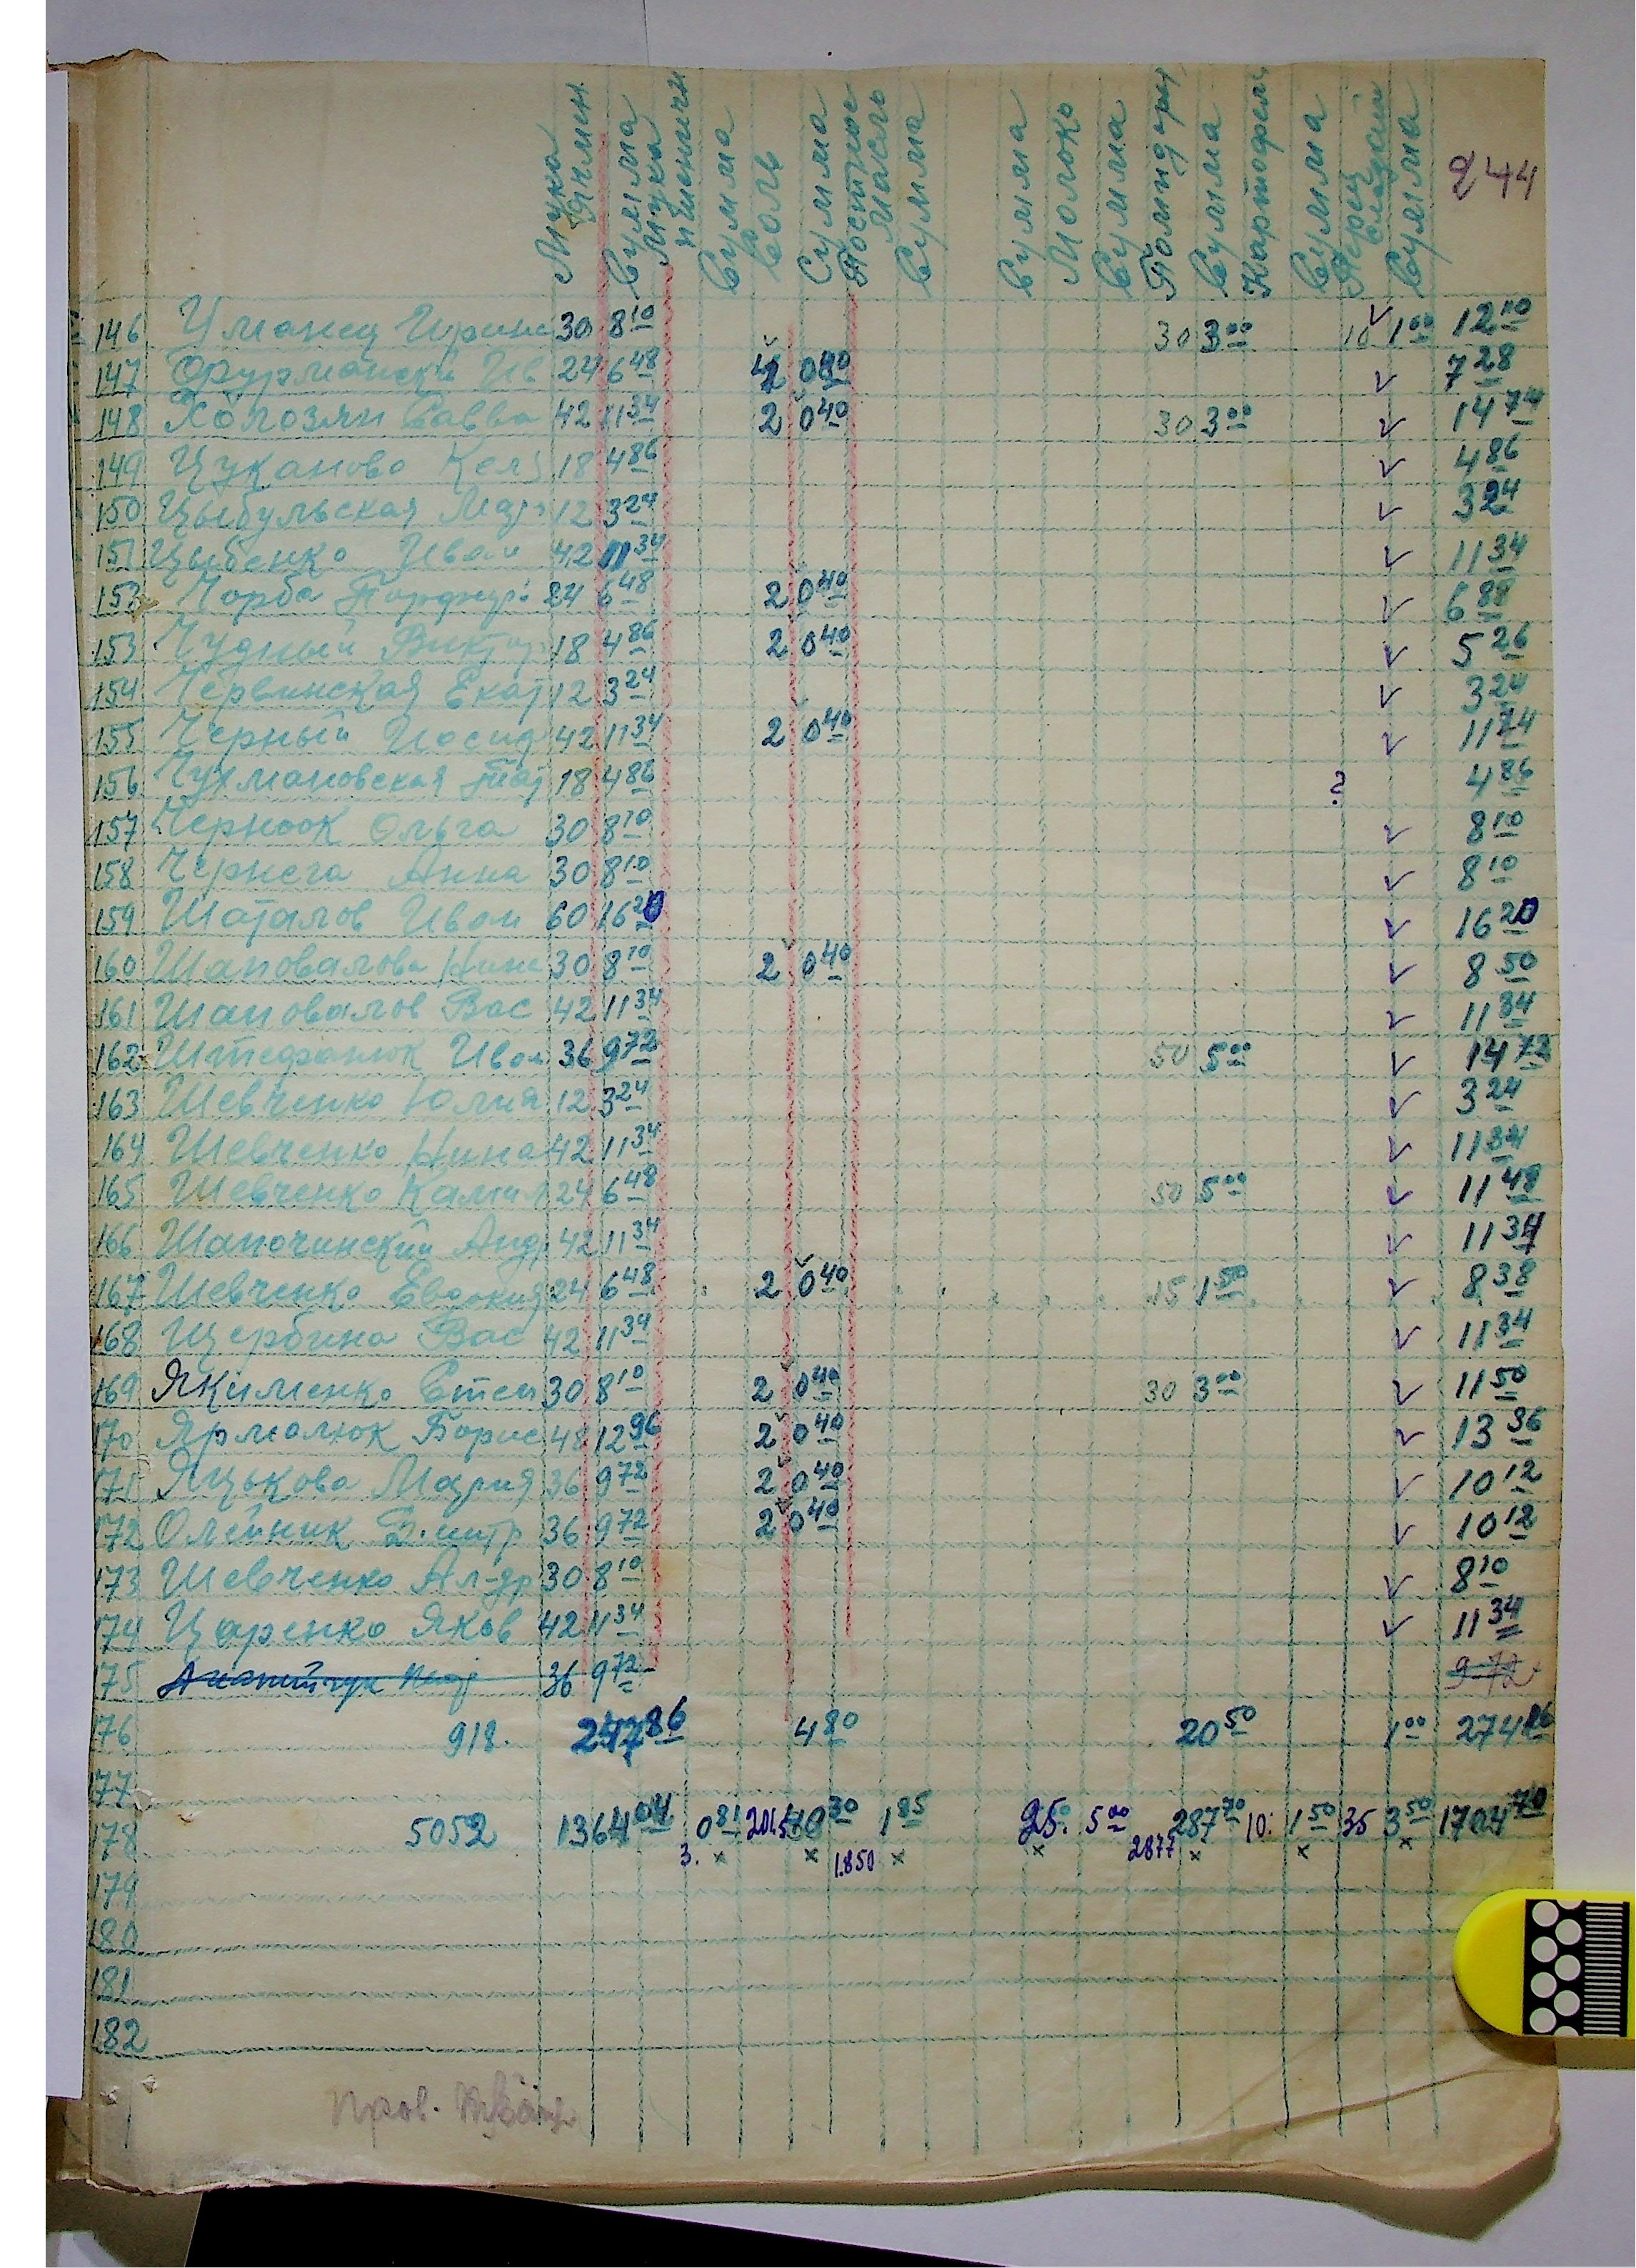 Мука Ячмен. Сумма Мука пшеничн Сумма Соль Сумма Постное Масло Сумма Сумма Молоко Сумма Помидоры Сумма Картофель Сумма Перец сладкий Сумма 244
146 Уманец Ирина 30 8 10 30 3 00 10 1 00 12 10
147 Фурмански Ив 24 6 48 7 28
148 Савва 42 11 34 2 0 40 30 3 00 14 74
149 Цуканова 18 4 86 4 86
150 Цыбульская Мар 12 3 24 3 24
151 Цыбенко Иван 42 11 34 11 34
153 Чорба 24 6 48 2 0 40 6 88
153 Чудный Виктор 18 4 86 2 0 40 5 26
154 Червинская Екат 12 3 24 3 24
155 Черный Иосип 42 11 34 2 0 40 11 74
156 Чухмановская Тат 18 4 86 ? 4 86
157 Черноок Ольга 30 8 10 8 10
158 Чернега Анна 30 8 10 8 10
159 Шаталов Иван 60 16 20 16 20
160 Шаповалова Нина 30 8 10 2 0 40 8 50
161 Шаповалов Вас 42 11 34 11 34
162 Штефанюк Иван 36 9 72 50 5 00 14 72
163 Шевченко Юлия 12 3 24 3 24
164 Шевченко Нина 42 11 34 11 34
165 Шевченко Камил 24 6 48 50 5 00 11 48
166 Шапочинский Анд 42 11 34 11 34
167 Шевченко Евдокия 24 6 48 2 0 40 15 1 50 8 38
168 Щербина Вас 42 11 34 11 34
169 Якименко Степ 30 8 10 2 0 40 30 3 00 11 50
170 Ярмолюк Борис 48 12 96 2 0 40 13 36
171 Яцькова Мария 36 9 72 2 0 40 10 12
172 Олейник Дмитр 36 9 72 2 0 40 10 12
173 Шевченко Ал-др 30 8 10 8 10
174 Царенко Яков 42 11 34 11 34
175 36 9 72 9 72
176 918. 247 86 4 80 20 50 1 00 274 16
177
178 5052 1364 04 0 81 40 30 1 85 25. 5 00 287 70 10. 1 50 35 3 50 1704 70
3. x x 1.850 x x 2877 x x x
179
180
181
182
Пров.